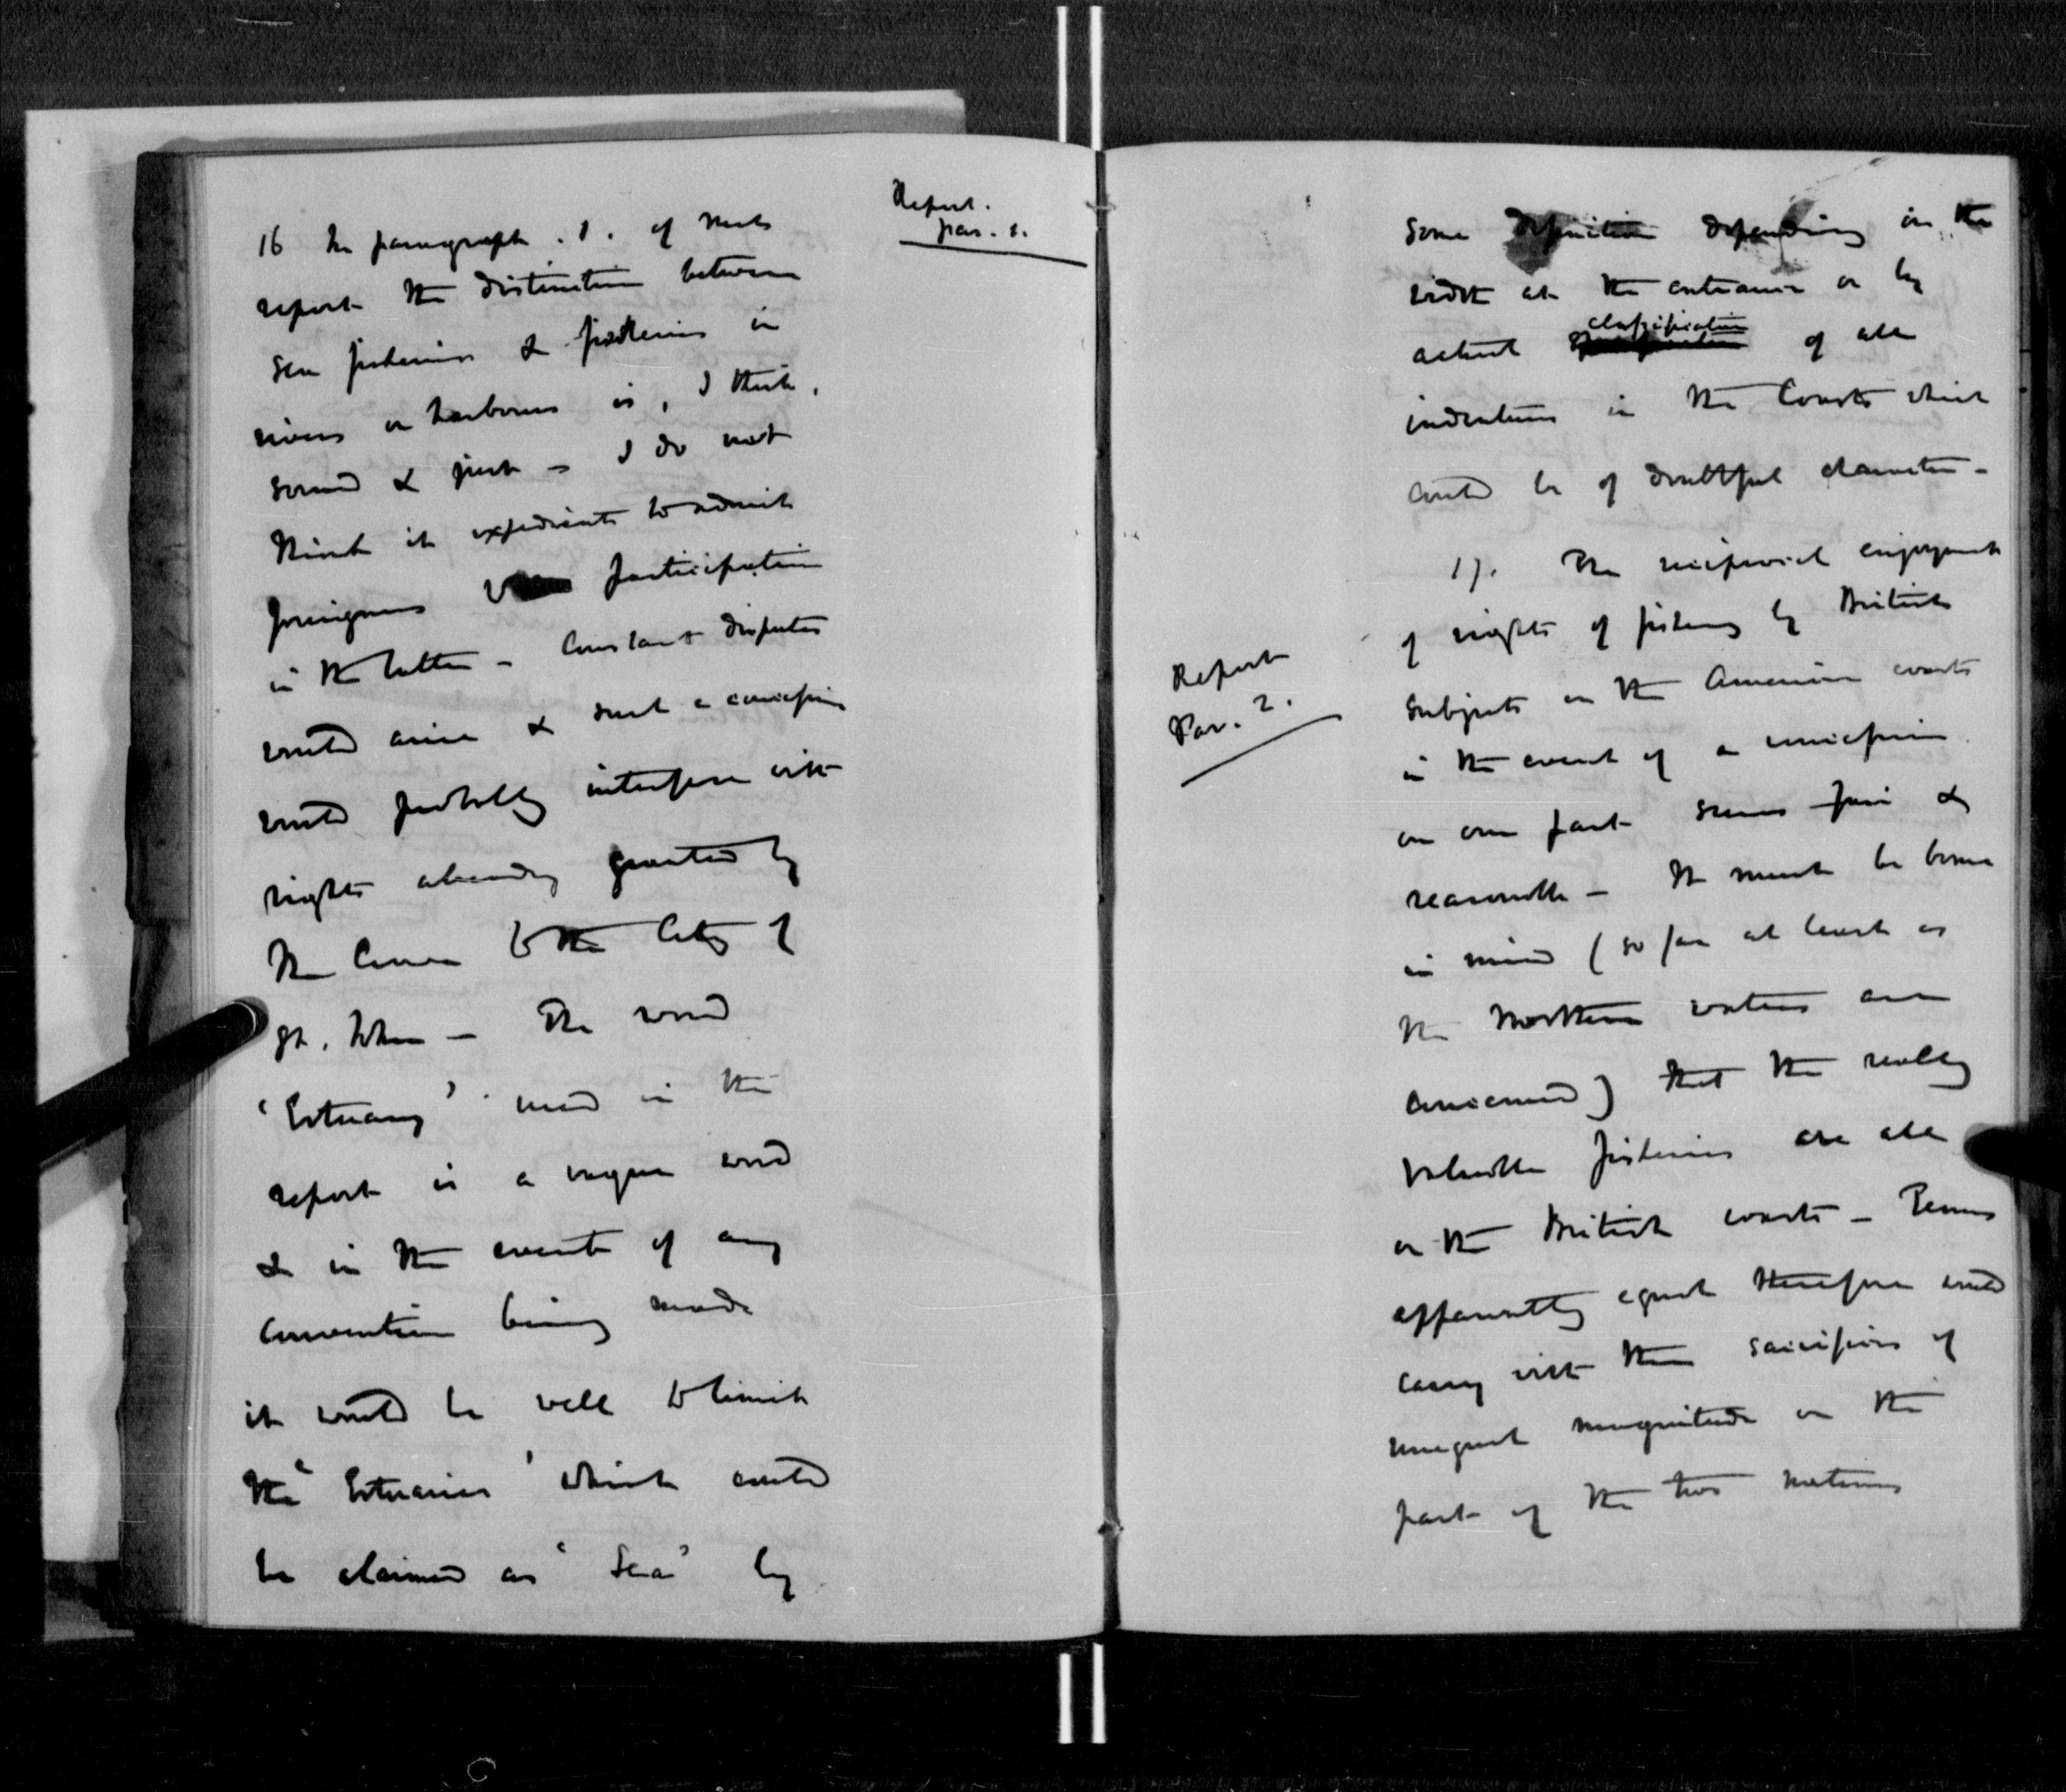 Report.
par. 1.
16 In paragraph . 1 . of
report the distinction between
sea fisheries & fisheries in
rivers or harbours is, I think,
sound & just – I do not
think it expedient to admit
foreigners to participation
in the latter – Constant disputes
would arise & such a concession
would probably interfere with
rights already granted by
the Crown to the City of
St. John – The word
'Estuary' used in the
report is a vague word
& in the event of any
Convention being made
it would be well to limit
the 'Estuaries' which could
be claimed as 'Sea' by
some definition depending on the
width at the entrance or by
actual classification of all
indentations in the Coasts which
could be of doubtful character –
17. The reciprocal enjoyment
of rights of fishing by British
Report
Par. 2.
subjects on the American coasts
in the event of a concession
on our part seems fair &
reasonable – It must be borne
in mind (so far at least as
the Northern waters are
concerned) that the really
valuable fisheries are all
on the British coasts – Terms
apparently equal therefore would
carry with them sacrifices of
unequal magnitude on the
part of the two nations